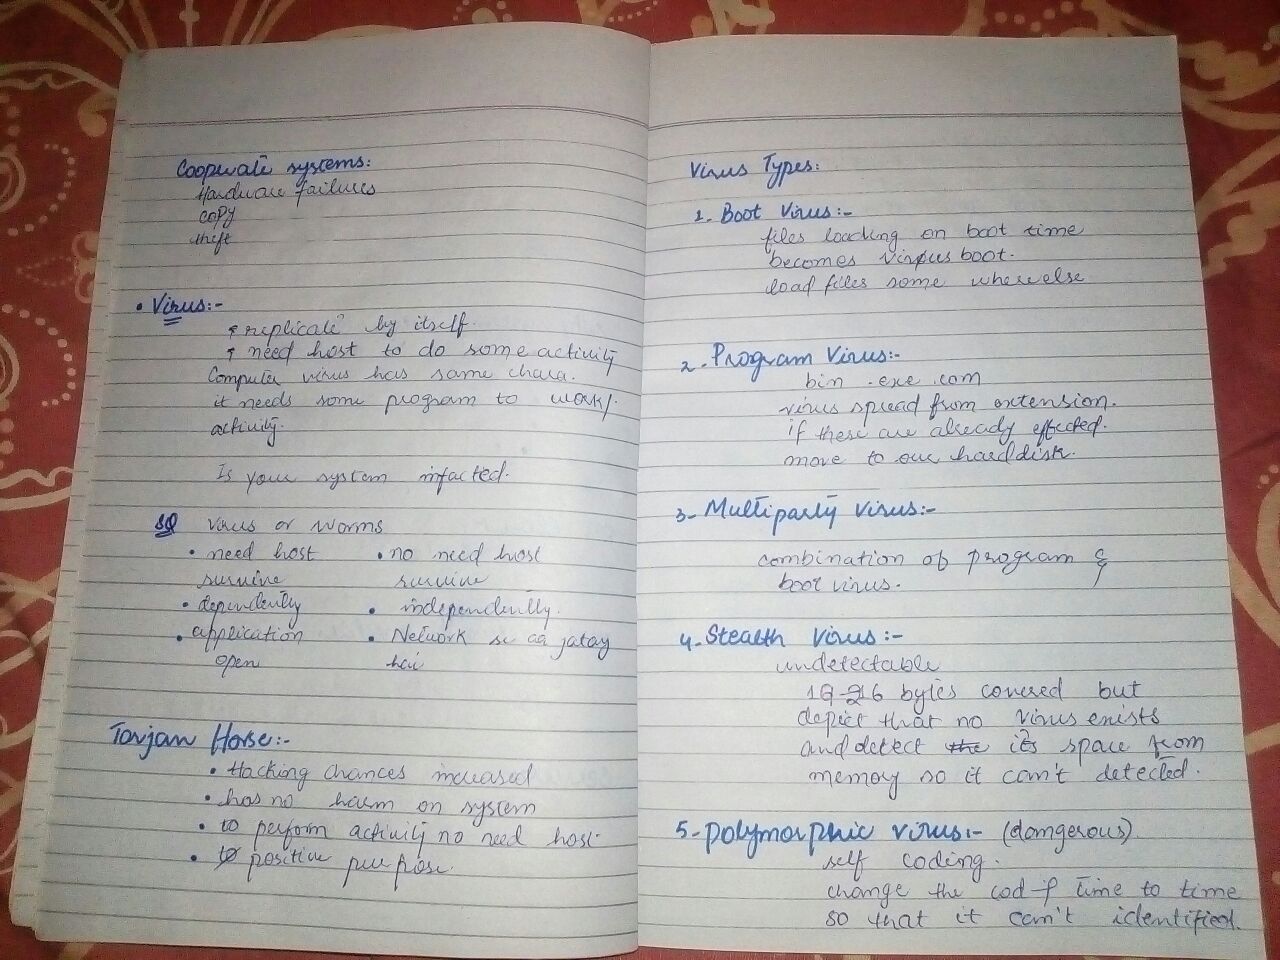 Cooperate systems:
Hardware failures
copy
theft
• Virus:-
replicate by itself.
need host to do some activity
Computer virus has same chara.
it needs some program to work/
activity.
Is your system infacted.
SQ Virus or Worms
• need host • no need host
survive survive
• dependently • independently.
• application • Network se aa jatay
open hai
Torjan Horse:-
• Hacking chances increased
• has no harm on system
• to perform activity no need host
• positive purpose.
Virus Types:
1- Boot Virus:-
files loading on boot time
becomes virus boot.
load files some where else
2- Program Virus:-
bin .exe .com
virus spread from extension.
if these are already effected.
move to our hard disk.
3- Multiparty Virus:-
combination of program &
boot virus.
4- Stealth Virus:-
undetectable
bytes covered but
depict that no virus exists
and detect its space from
memory so it can't detected.
5- Polymorphic virus:- (dangerous)
self coding.
change the cod f time to time
so that it can't identified.